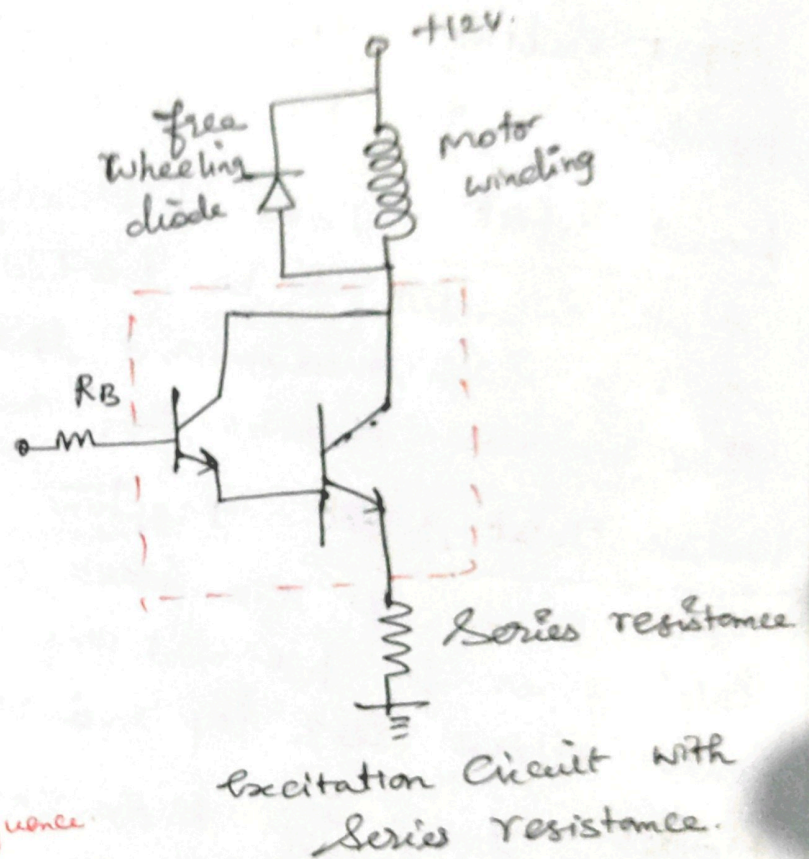 +12V.
free
wheeling
diode
motor
winding
RB
Series resistance
Excitation Circuit with
Series resistance.
uence.